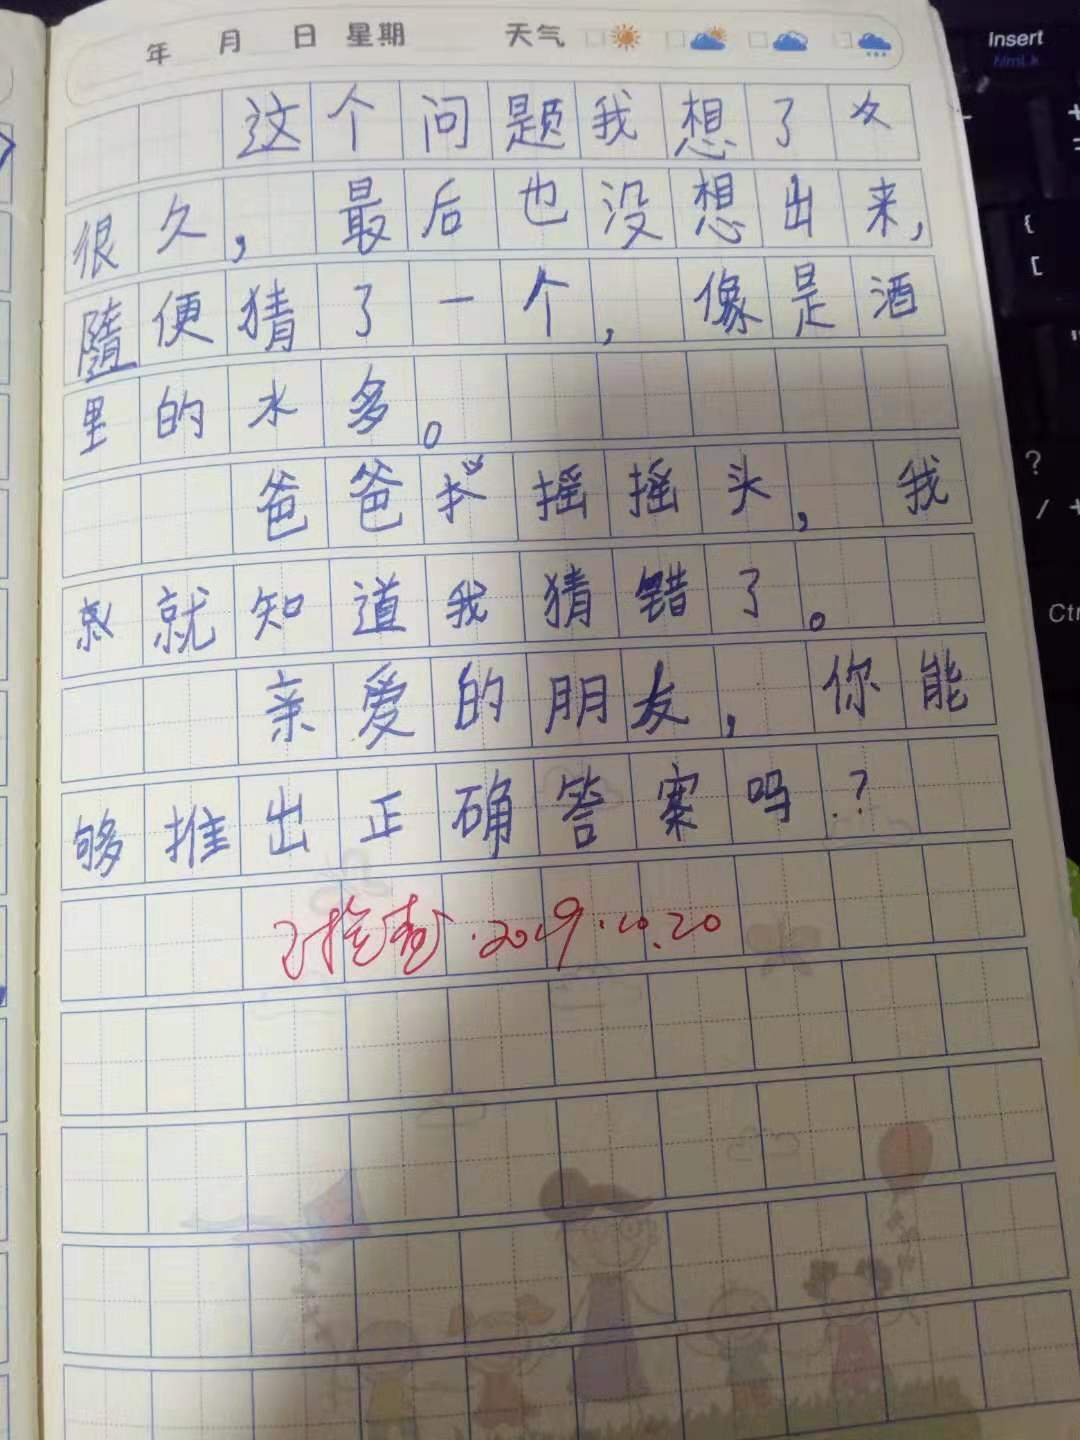 年 月 日 星期 天气
Insert
这个问题我想了
很久，最后也没想出来，
随便猜了一个，像是酒
里的水多。
爸爸摇摇头，我
就知道我猜错了。
亲爱的朋友，你能
够推出正确答案吗？
已检查.2019.10.20
{
[
?
/
Ctr